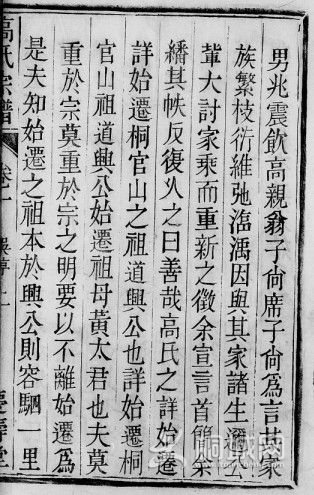 男兆震飲高親翁子尙席子尙爲言其家
族繁枝衍維弛湣渪因與其家諸生邇公
輩大討家乘而重新之徵余宣言首僃余
繙其帙反復乆之曰善哉高氏之詳始遷
詳始遷桐官山之祖道興公也詳始遷桐
官山祖道興公始遷祖母黃太君也夫莫
重於宗莫重於宗之明要以不離始遷爲
是夫知始遷之祖本於興公則容駟一里
高氏宗譜
卷一